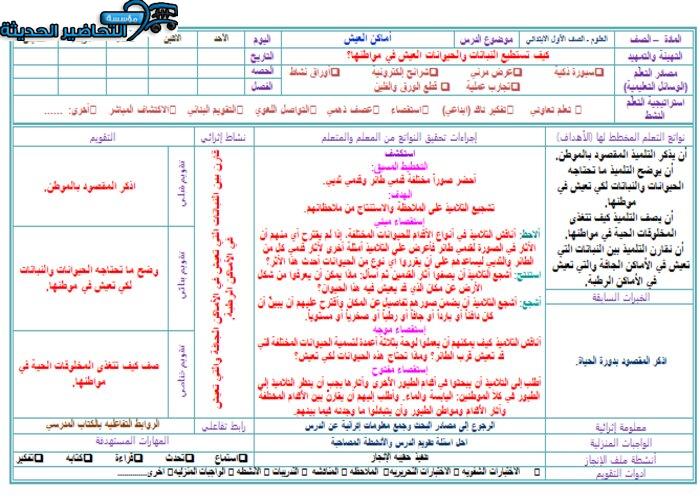 مؤسسة
التحاضير الحديثة
المادة – الصف
العلوم - الصف الأول الابتدائي
موضوع الدرس
أماكن العيش
اليوم
الأحد
الاثنين
التهيئة والتمهيد
كيف تستطيع النباتات والحيوانات العيش في مواطنها؟
التاريخ
مصادر التعلم
(الوسائل التعليمية)
□ سبورة ذكية □ عرض مرئي □ شرائح إلكترونية □ أوراق نشاط
□ تجارب عملية □ قطع الورق والطين
الحصة
الفصل
استراتيجية التعلم النشط
□ تعلم تعاوني □ تفكير ناقد (ابداعي) □ استقصاء □ عصف ذهني □ التواصل اللغوي □ التقويم البنائي □ الاكتشاف المباشر □ أخرى: ......
نواتج التعلم المخطط لها (الأهداف)
إجراءات تحقيق النواتج من المعلم والمتعلم
نشاط إثرائي
التقويم
أن يذكر التلميذ المقصود بالموطن.
أن يوضح التلميذ ما تحتاجه
الحيوانات والنباتات لكي تعيش في
موطنها.
أن يصف التلميذ كيف تتغذى
المخلوقات الحية في موطنها.
أن نقارن التلميذ بين النباتات التي
تعيش في الأماكن الجافة والتي تعيش
في الأماكن الرطبة.
الخبرات السابقة
اذكر المقصود بدورة الحياة.
استكشف
التخطيط المسبق:
أحضر صوراً مختلفة قدمي طائر وقدمي تدبي.
الهدف:
تشجيع التلاميذ على الملاحظة والاستنتاج من ملاحظاتهم.
إستقصاء مبني
ألاحظ: أناقش التلاميذ في أنواع الأقدام للحيوانات المختلفة، إذا لم يقترح أي منهم أن
الآثار في الصورة لقدمي طائر فأعرض على التلاميذ أمثلة أخرى لآثار قدمي كل من
الطائر والثديي ليساعدهم على أن يقرروا أي نوع من الحيوانات أحدث هذا الأثر؟
استنتج: أشجع التلاميذ أن يصفوا آثار القدمين ثم أسأل: ماذا يمكن أن يعرفوا من شكل
الأرض عن مكان الذي قد يعيش فيه هذا الحيوان؟
أشجع: أشجع التلاميذ أن يضمن صورهم تفاصيل عن المكان وأقترح عليهم أن يبين أن
كان دافئاً أو بارد أو جافاً أو رطباً أو صخرياً أو مستوياً.
إستقصاء موجه
أناقش التلاميذ كيف يمكنهم أن يعملوا لوحة بثلاثة أعمدة لتسمية الحيوانات المختلفة التي
قد تعيش قرب الطائر؟ وماذا تحتاج هذه الحيوانات لكي تعيش؟
إستقصاء مفتوح
أطلب إلى التلاميذ أن يبحثوا في أقدام الطيور الأخرى وآثارها يجب أن ينظر التلاميذ إلى
الطيور في كلا الموطنين: اليابسة والماء. وأطلب إليهم أن يقارن بين الأقدام المختلفة
والآثار الأقدام ومواطن الطيور وأن يتبادلوا ما وجدته كيما بينهم.
قارن بين النباتات التي تعيش في الأماكن الجافة والتي تعيش
في الأماكن الرطبة.
تقويم قبلي
اذكر المقصود بالموطن.
تقويم بنائي
وضح ما تحتاجه الحيوانات والنباتات
لكي تعيش في موطنها.
تقويم ختامي
صف كيف تتغذى المخلوقات الحية في
مواطنها.
معلومة إثرائية
الرجوع إلى مصادر البحث وجمع معلومات إثرائية عن الدرس
رابط تفاعلي
الروابط التفاعليه بالكتاب المدرسي
الواجبات المنزلية
احل اسئلة تقويم الدرس والأنشطة المصاحبة
المهارات المستهدفة
أنشطة ملف الإنجاز
تنفيذ حقيبه الإنجاز
استماع □ تحدث □ قراءة □ كتابه □ تفكير
ادوات التقويم
□ الاختبارات الشفويه □ الاختبارات التحريريه □ الملاحظه □ المناقشه □ التدريبات □ الأنشطه □ الواجبات المنزليه □ اخرى................